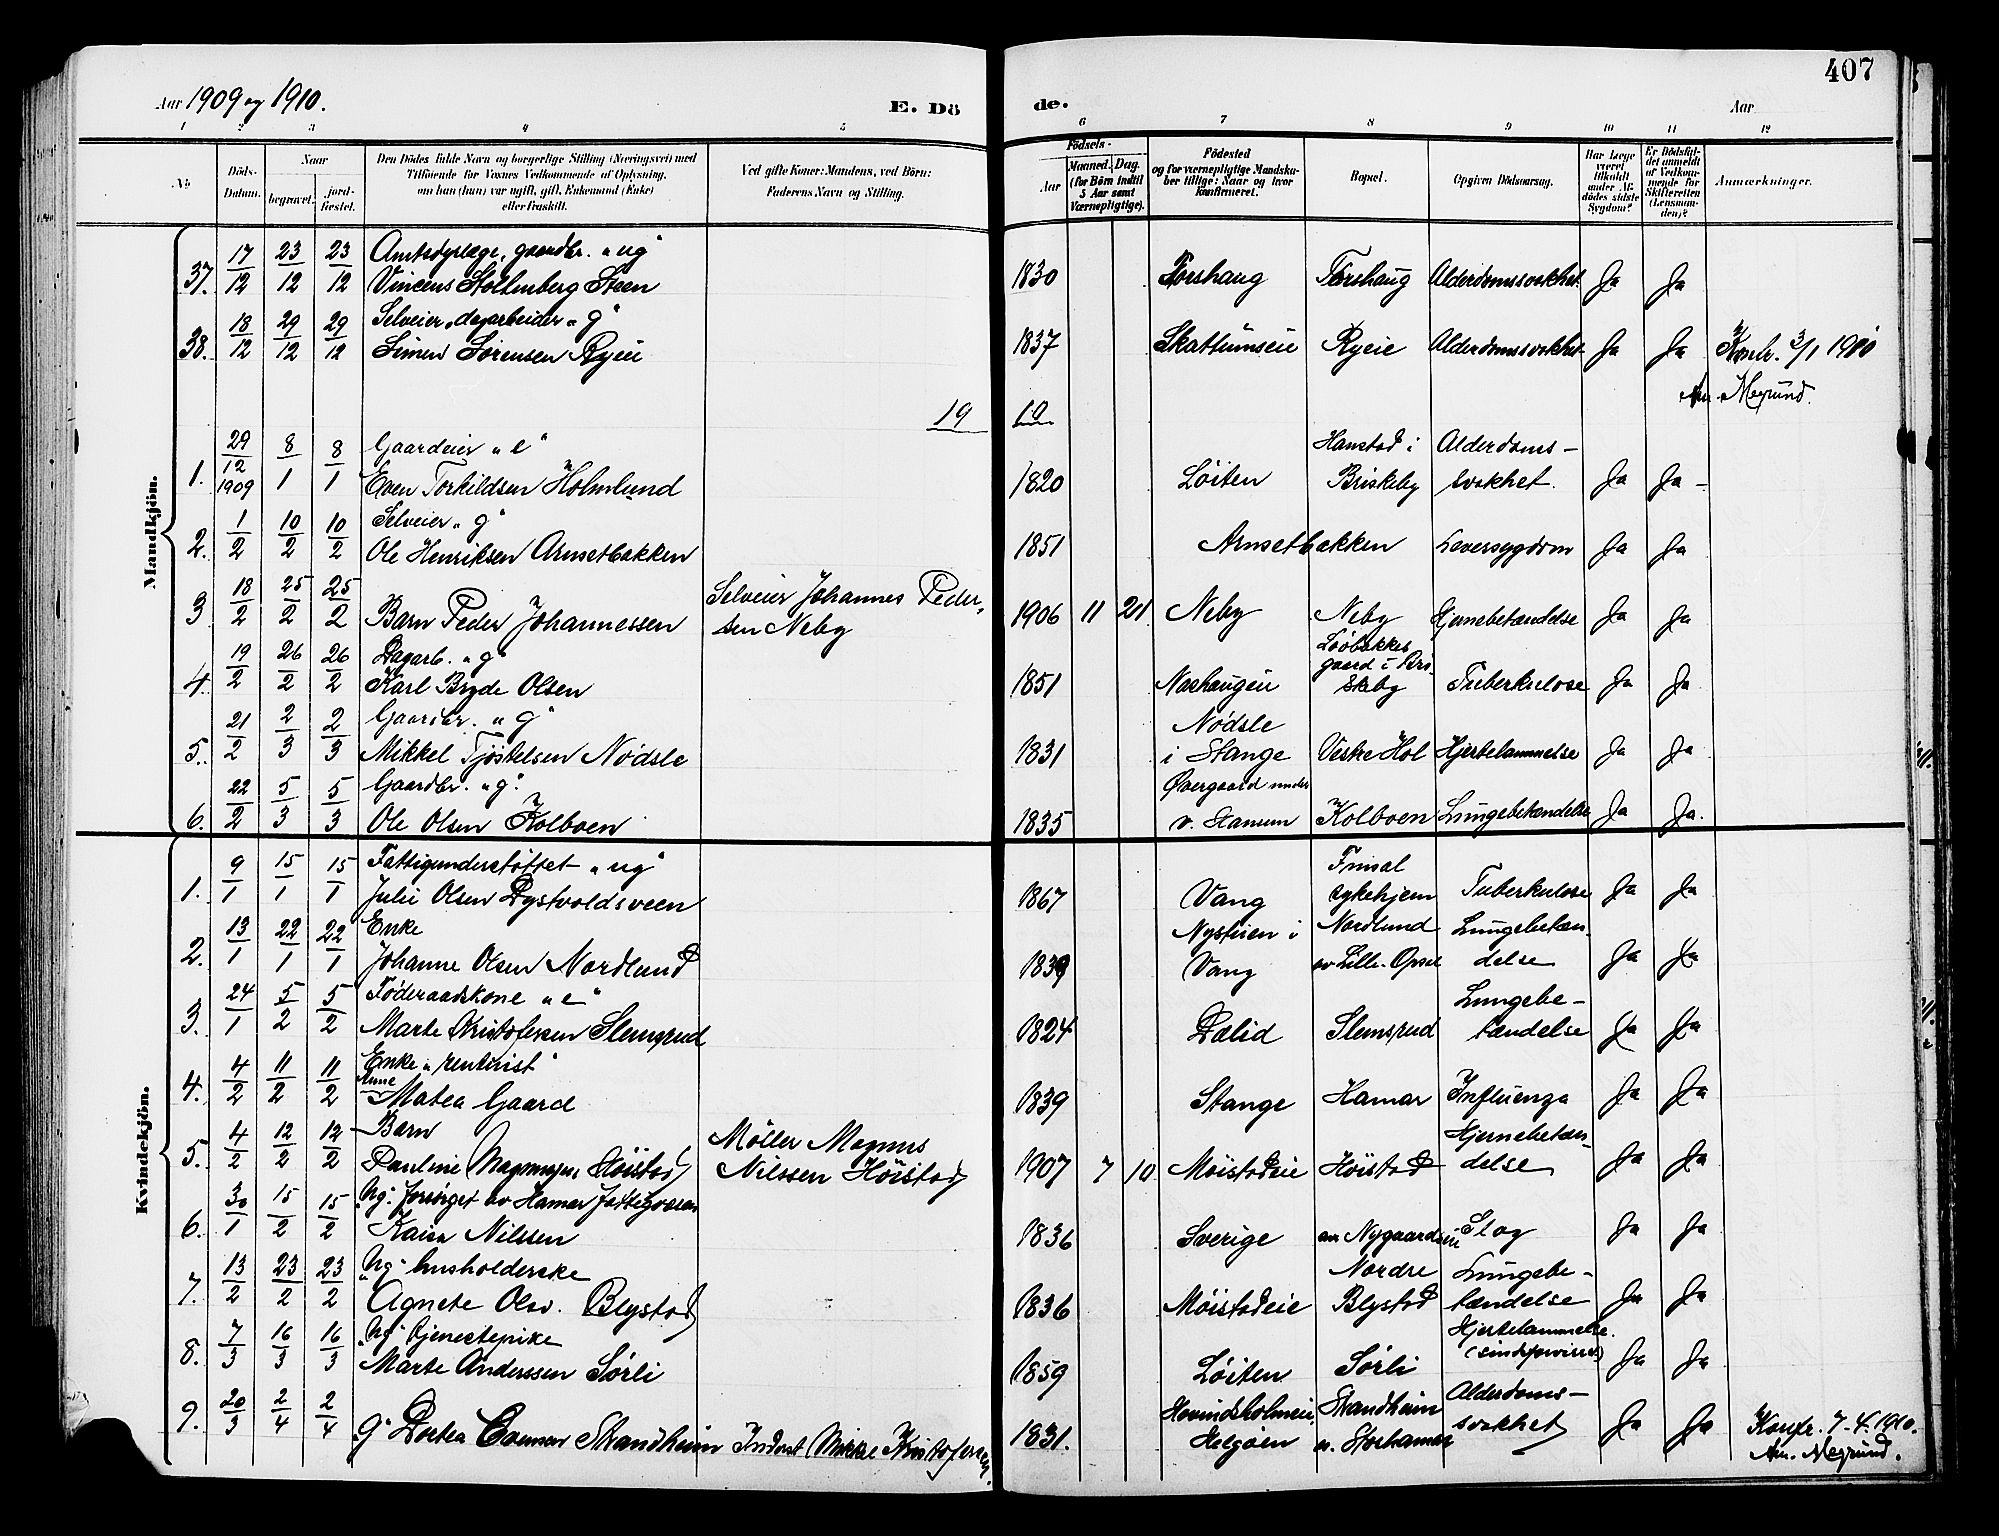 407
Aar 1909 og 1910.
E. Dö
de.
Aar
1 2 3 4 5 6 7 8 9 10 11 12
No
Döds-Datum.
Naar
begravet.
jord-fæstet.
Den Dödes fulde Navn og borgerlige Stilling (Næringsvei) med
Tilföiende for Voxnes Vedkommende af Oplysning,
om han (hun) var ugift, gift, Enkemand (Enke)
eller fraskilt.
Ved gifte Koner: Mandens, ved Börn:
Faderens Navn og Stilling.
Födsels-
Aar
Maaned.
Dag.
(for Börn indtil
5 Aar samt
Værnepligtige).
Födested
og for værnepligtige Mandska-
ber tillige: Naar og hvor
konfirmeret.
Bopæl.
Opgiven Dödsaarsag.
Har Læge
været
tilkaldt
under Af-
dödes sidste
Sygdom?
Er Dödsfal-
det anmeldt
af Vedkom-
mende for
Skifteretten
(Lensman-
den)?
Anmærkninger.
Mandkjön.
37. 17/12 23/12 23/12 Amtsdyrlæge, gaardbr. "ug"
Vincens Stoltenberg Steen 1830 Torshaug Torshaug Alderdomssvakhet Ja Ja
38. 18/12 29/12 29/12 Selveier, dagarbeider "g"
Simen Sørensen Ryeie 1837 Skattumseie Ryeie Alderdomssvakhet Ja Ja Kontr. 3/1 1910
Megrund.
19 10
1. 29/12 1909 8/1 8/1 Gaardeier "e"
Even Torkildsen Holmlund 1820 Løiten Hanstad i
Briskeby Alderdoms-
svakhet. Ja Ja -
2. 1/2 10/2 10/2 Selveier "g"
Ole Henriksen Arnsetbakken 1851 Arnsetbakken Leversygdom Ja Ja
3 18/2 25/2 25/2 Barn Peder Johannessen Selveier Johannes Peder-
sen Neby 1906 11 21 Neby Neby Hjernebetændelse Ja Ja
4. 19/2 26/2 26/2 Dagarb. "g"
Karl Bryde Olsen 1851 Narhaugen Løvbakkes
gaard i Bri
skeby Tuberkulose Ja Ja
5. 21/2 2/3 2/3 Gaardbr. "g"
Mikkel Tjøstelsen Nødsle 1831 Nødsle
i Stange Veske Hol Hjertelammelse Ja Ja
6. 22/2 5/3 5/3 Gaardbr. "g".
Ole Olsen Kolboen 1835 Øvergaard under
v. Stansum Kolboen Lungebetændelse Ja Ja.
Kvindekjön.
1. 9/1 15/1 15/1 Fattigunderstøttet "ug"
Julie Olsen Dystvoldsveen 1867 Vang Finsal
sykehjem Tuberkulose Ja Ja
2. 13/1 22/1 22/1 Enke
Johanne Olsen Nordlund 1839 Nystuen i
Vang Nordlund
av Lille-Opsal Lungebetæn-
delse Ja Ja
3. 24/1 5/2 5/2 Føderaadskone "e"
Marte Kristofersen Slemsrud 1824 Dælid Slemsrud Lungebe-
tændelse Ja Ja
4. 4/2 11/2 11/2 Enke "rentenist"
Anne
Matea Gaard 1839 Stange Hamar Influenza Ja Ja
5. 4/2 12/2 12/2 Barn
Pauline Magnussen Høistad Møller Magnus
Nilssen Höistad 1907 7 10 Møistadeie Høistad Hjernebetæn-
delse Ja Ja
6. 30/1 15/2 15/2 "ug" forsørget av Hamar fattigvæsen
Kaisa Nilssen 1836 Sverige av Nygaardseie Slag Ja Ja
7. 13/2 23/2 23/2 "ug" husholderske
Agnete Olsv. Blystad 1836 Møistadeie Nordre
Blystad Lungebe-
tændelse Ja Ja
8. 7/3 16/3 16/3 "ug" tjenestepike
Marte Anderssen Sørli 1859 Løiten Sørli Hjertelammelse.
(sindsforvirret) Ja Ja
9. 20/3 2/4 2/4 "g" Dortea Evensen Strandheim Inderst Mikkel Kristofersen. 1831. Hovindsholmeie,
Helgøen Strandheim
u. Storhamar Alderdoms-
svakhet Ja Ja Konfr. 7-4-1910.
Megrund.